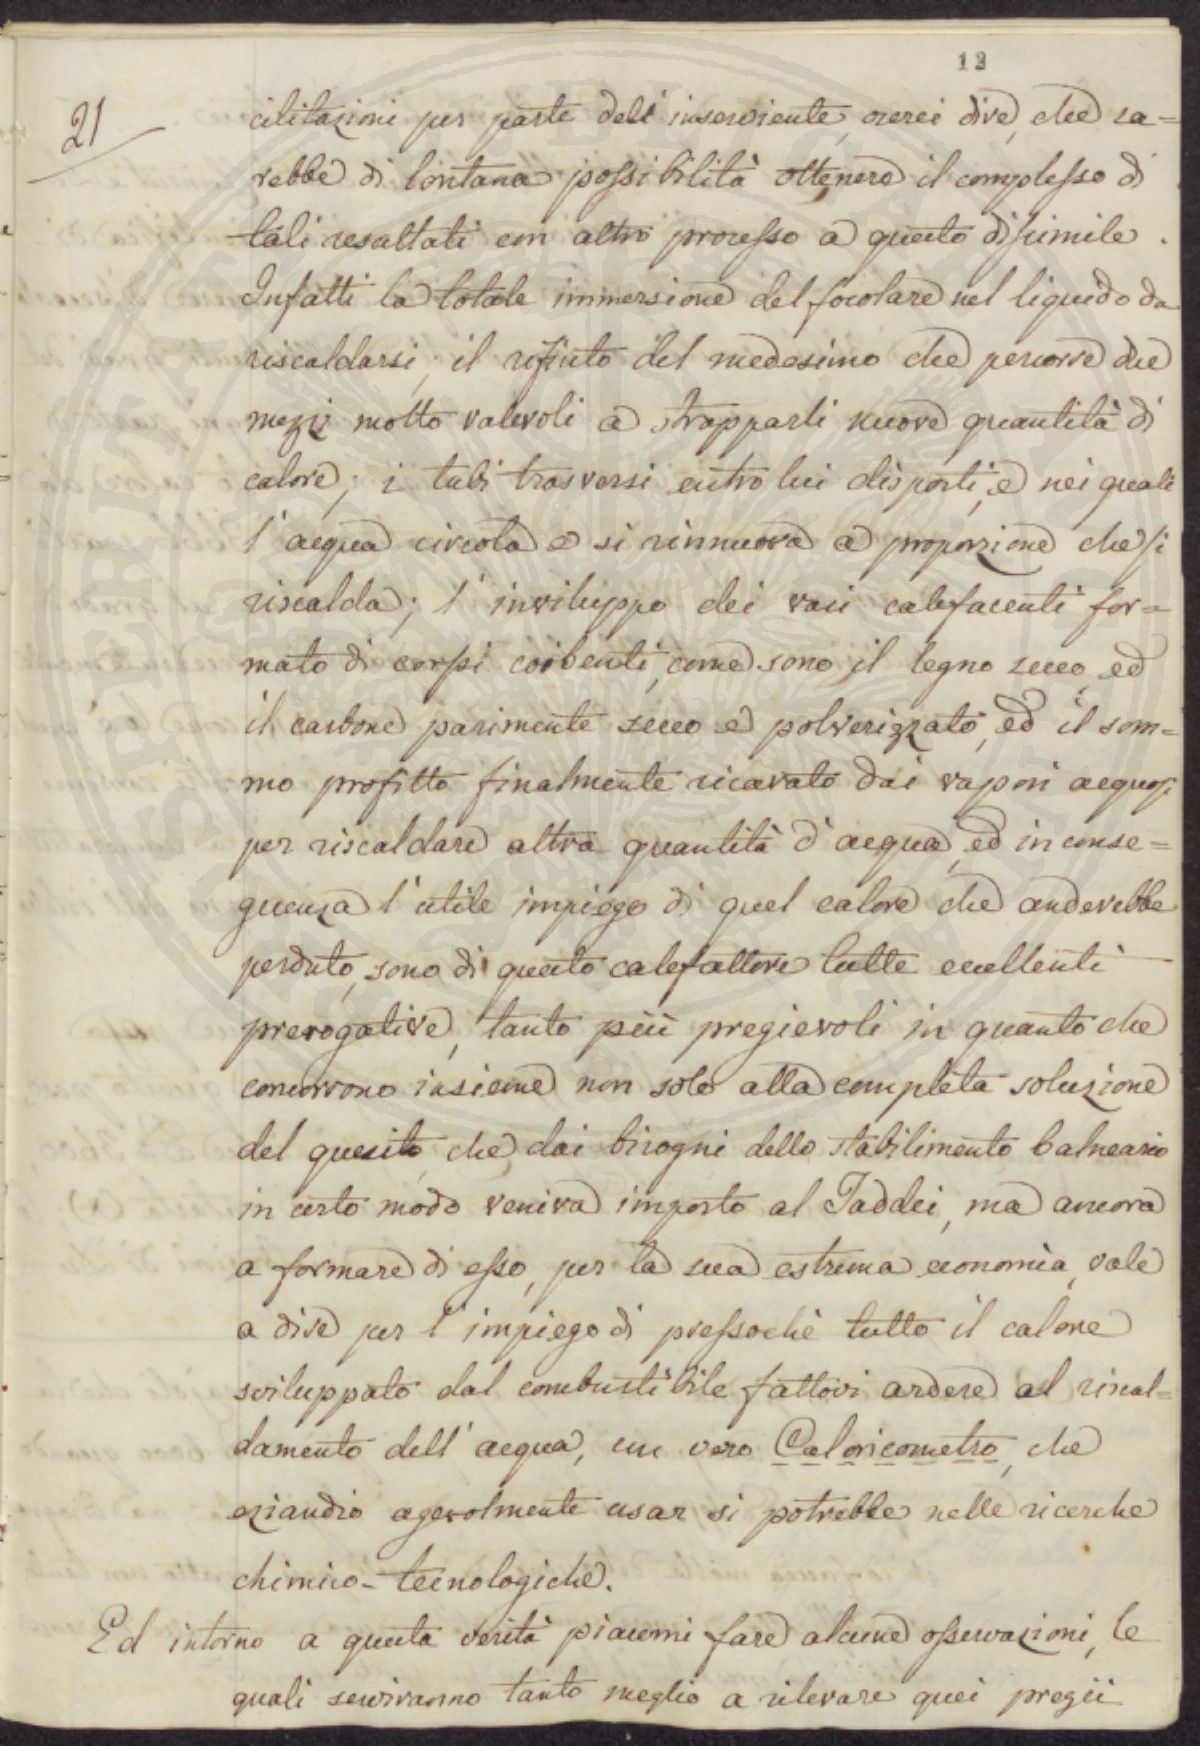 12
21
cilitazioni per parte dell' inserviente, oserei dire, che sa=
rebbe di lontana possibilità ottenere il complesso di
tali resultati con altro processo a questo dissimile.
Infatti la totale immersione del focolare nel liquido da
riscaldarsi; il rifiuto del medesimo che percorre due
mezzi molto valevoli a strapparli nuove quantità di
calore; i tubi trasversi entro lui disposti, e nei quali
l' acqua circola e si rinnuova a proporzione che si
riscalda; l' inviluppo dei vasi calefacenti for=
mato di corpi coibenti, come sono il legno secco ed
il carbone parimente secco e polverizzato, ed il som=
mo profitto finalmente ricavato dai vapori acquosi
per riscaldare altra quantità d' acqua, ed in conse=
guenza l' utile impiego di quel calore che anderebbe
perduto, sono di questo calefattore tutte eccellenti
prerogative, tanto più pregievoli in quanto che
concorrono insieme non solo alla completa soluzione
del quesito che dai bisogni dello stabilimento balneario
in certo modo veniva imposto al Taddei, ma ancora
a formare di esso, per la sua estrema economia, vale
a dire per l' impiego di pressochè tutto il calore
sviluppato dal combustibile fattovi ardere al riscal=
damento dell' acqua, un vero Caloricometro, che
eziandio agevolmente usar si potrebbe nelle ricerche
chimico-tecnologiche.
Ed intorno a questa verità piacemi fare alcune osservazioni, le
quali serviranno tanto meglio a rilevare quei pregii